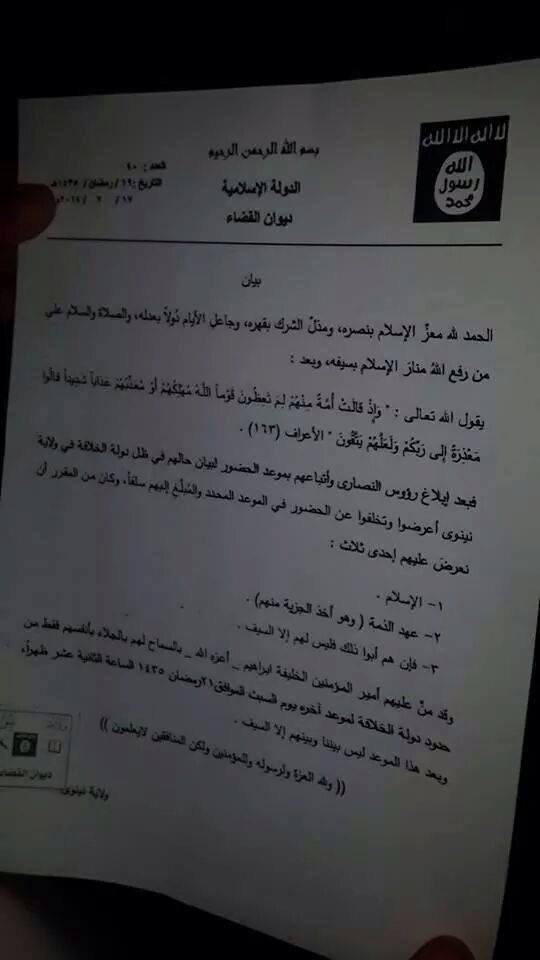 لا اله الا الله
الله
رسول
محمد
بسم الله الرحمن الرحيم
الدولة الإسلامية
ديوان القضاء
العدد : ٤٠
التاريخ :١٩/رمضان/١٤٣٥هـ
١٧/ ٧ /٢٠١٤م
بيان
الحمد لله معزّ الإسلام بنصره، ومذلّ الشرك بقهره، وجاعلِ الأيام دُولاً بعدله، والصلاة والسلام على
من رفع اللهُ منارَ الإسلام بسيفه، وبعد :
يقول الله تعالى : " وَإِذْ قَالَتْ أُمَّةٌ مِنْهُمْ لِمَ تَعِظُونَ قَوْماً اللَّهُ مُهْلِكُهُمْ أَوْ مُعَذِّبُهُمْ عَذَاباً شَدِيداً قَالُوا
مَعْذِرَةً إِلَى رَبِّكُمْ وَلَعَلَّهُمْ يَتَّقُونَ " الأعراف (١٦٣) .
فبعد إبلاغ رؤوس النصارى وأتباعهم بموعد الحضور لبيان حالهم في ظل دولة الخلافة في ولاية
نينوى أعرضوا وتخلفوا عن الحضور في الموعد المحدد والمُبلَّغ إليهم سلفاً، وكان من المقرر أن
نعرضَ عليهم إحدى ثلاث :
١- الإسلام .
٢- عهد الذمة ( وهو أخذ الجزية منهم) .
٣- فإن هم أبوا ذلك فليس لهم إلا السيف .
وقد منَّ عليهم أمير المؤمنين الخليفة ابراهيم _ أعزه الله _ بالسماح لهم بالجلاء بأنفسهم فقط من
حدود دولة الخلافة لموعد آخره يوم السبت الموافق٢١رمضان ١٤٣٥ الساعة الثانية عشر ظهراً،
وبعد هذا الموعد ليس بيننا وبينهم إلا السيف .
(( ولله العزة ولرسوله وللمؤمنين ولكن المنافقين لايعلمون ))
ديوان القضاء
ولاية نينوى